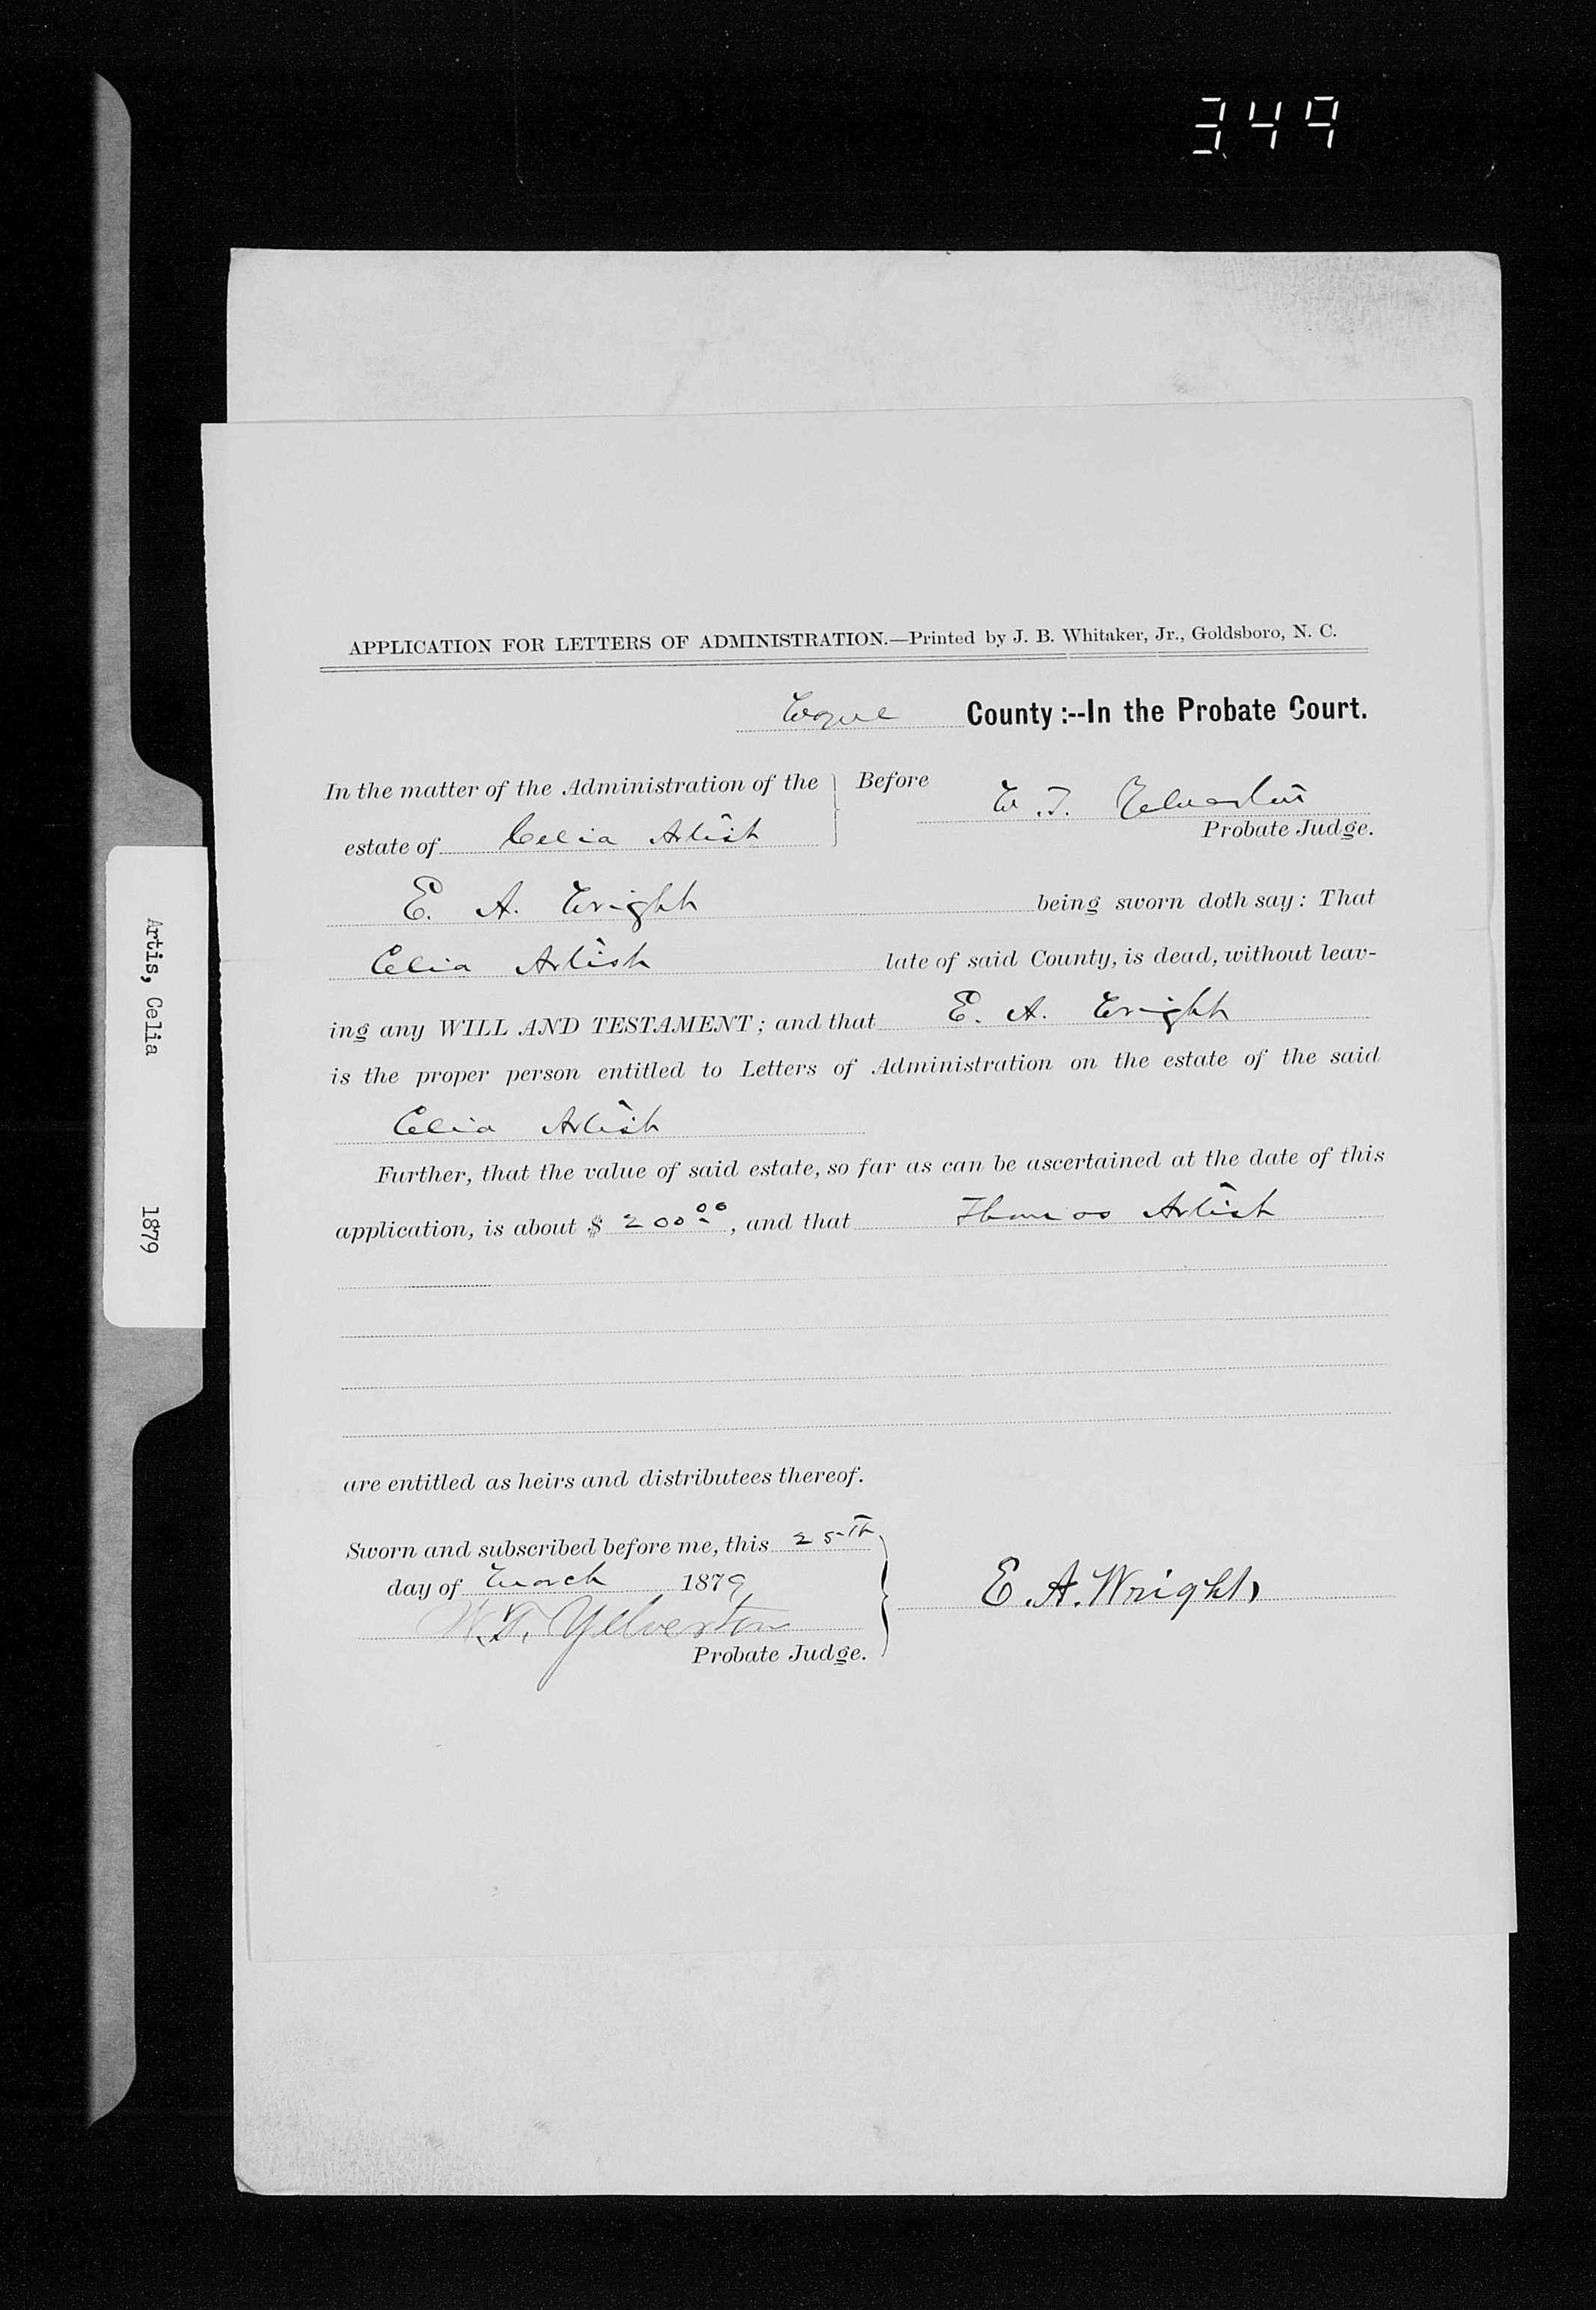 349
APPLICATION FOR LETTERS OF ADMINISTRATION.—Printed by J. B. Whitaker, Jr., Goldsboro, N. C.
Wayne County :--In the Probate Court.
In the matter of the Administration of the
estate of Celia Artish
Before W. T. Yelverton
Probate Judge.
E. A. Wright being sworn doth say: That
Celia Artish late of said County, is dead, without leav-
ing any WILL AND TESTAMENT; and that E. A. Wright
is the proper person entitled to Letters of Administration on the estate of the said
Celia Artish
Further, that the value of said estate, so far as can be ascertained at the date of this
application, is about $ 200 00, and that Thomas Artish
are entitled as heirs and distributees thereof.
Sworn and subscribed before me, this 25th
day of March 1879
W. T. Yelverton
Probate Judge.
E. A. Wright
Artis, Celia 1879